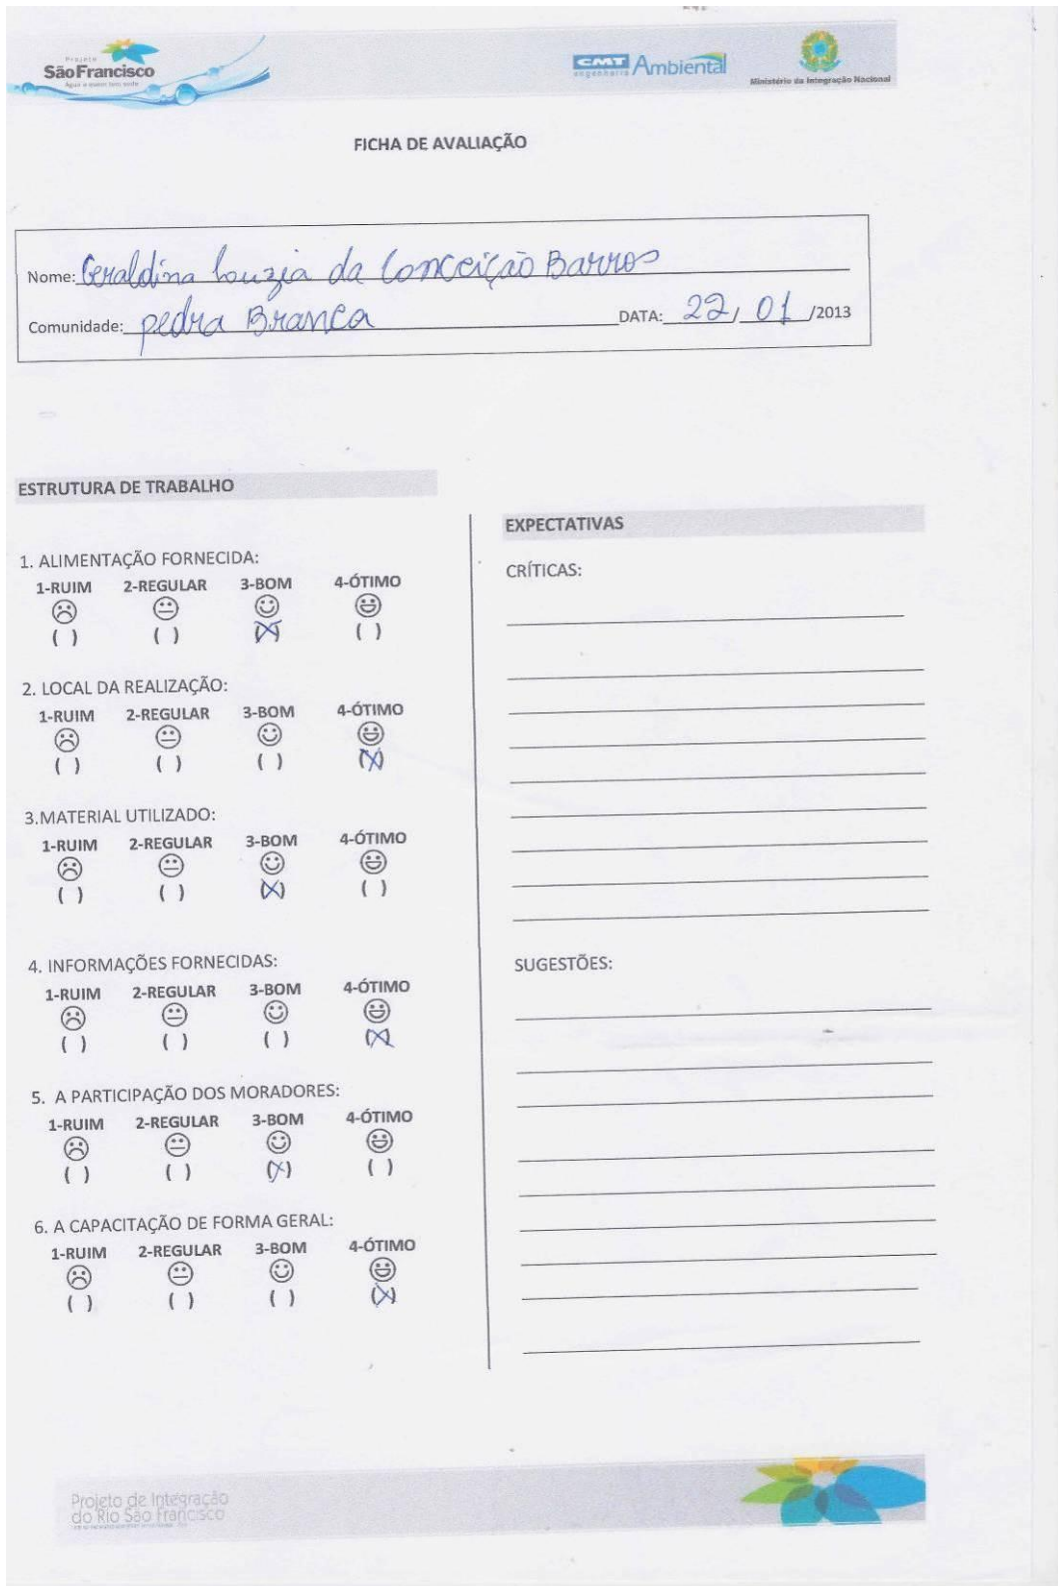 Projeto
São Francisco
Água a quem tem sede
CMT Ambiental
engenharia
Ministério da Integração Nacional
FICHA DE AVALIAÇÃO
Nome: Geraldina Louzia da Conceição Barros
Comunidade: pedra Branca DATA: 22/ 01 /2013
ESTRUTURA DE TRABALHO
1. ALIMENTAÇÃO FORNECIDA:
1-RUIM 2-REGULAR 3-BOM 4-ÓTIMO
( ) ( ) (X) ( )
2. LOCAL DA REALIZAÇÃO:
1-RUIM 2-REGULAR 3-BOM 4-ÓTIMO
( ) ( ) ( ) (X)
3.MATERIAL UTILIZADO:
1-RUIM 2-REGULAR 3-BOM 4-ÓTIMO
( ) ( ) (X) ( )
4. INFORMAÇÕES FORNECIDAS:
1-RUIM 2-REGULAR 3-BOM 4-ÓTIMO
( ) ( ) ( ) (X)
5. A PARTICIPAÇÃO DOS MORADORES:
1-RUIM 2-REGULAR 3-BOM 4-ÓTIMO
( ) ( ) (X) ( )
6. A CAPACITAÇÃO DE FORMA GERAL:
1-RUIM 2-REGULAR 3-BOM 4-ÓTIMO
( ) ( ) ( ) (X)
EXPECTATIVAS
CRÍTICAS:
SUGESTÕES:
Projeto de Integração
do Rio São Francisco